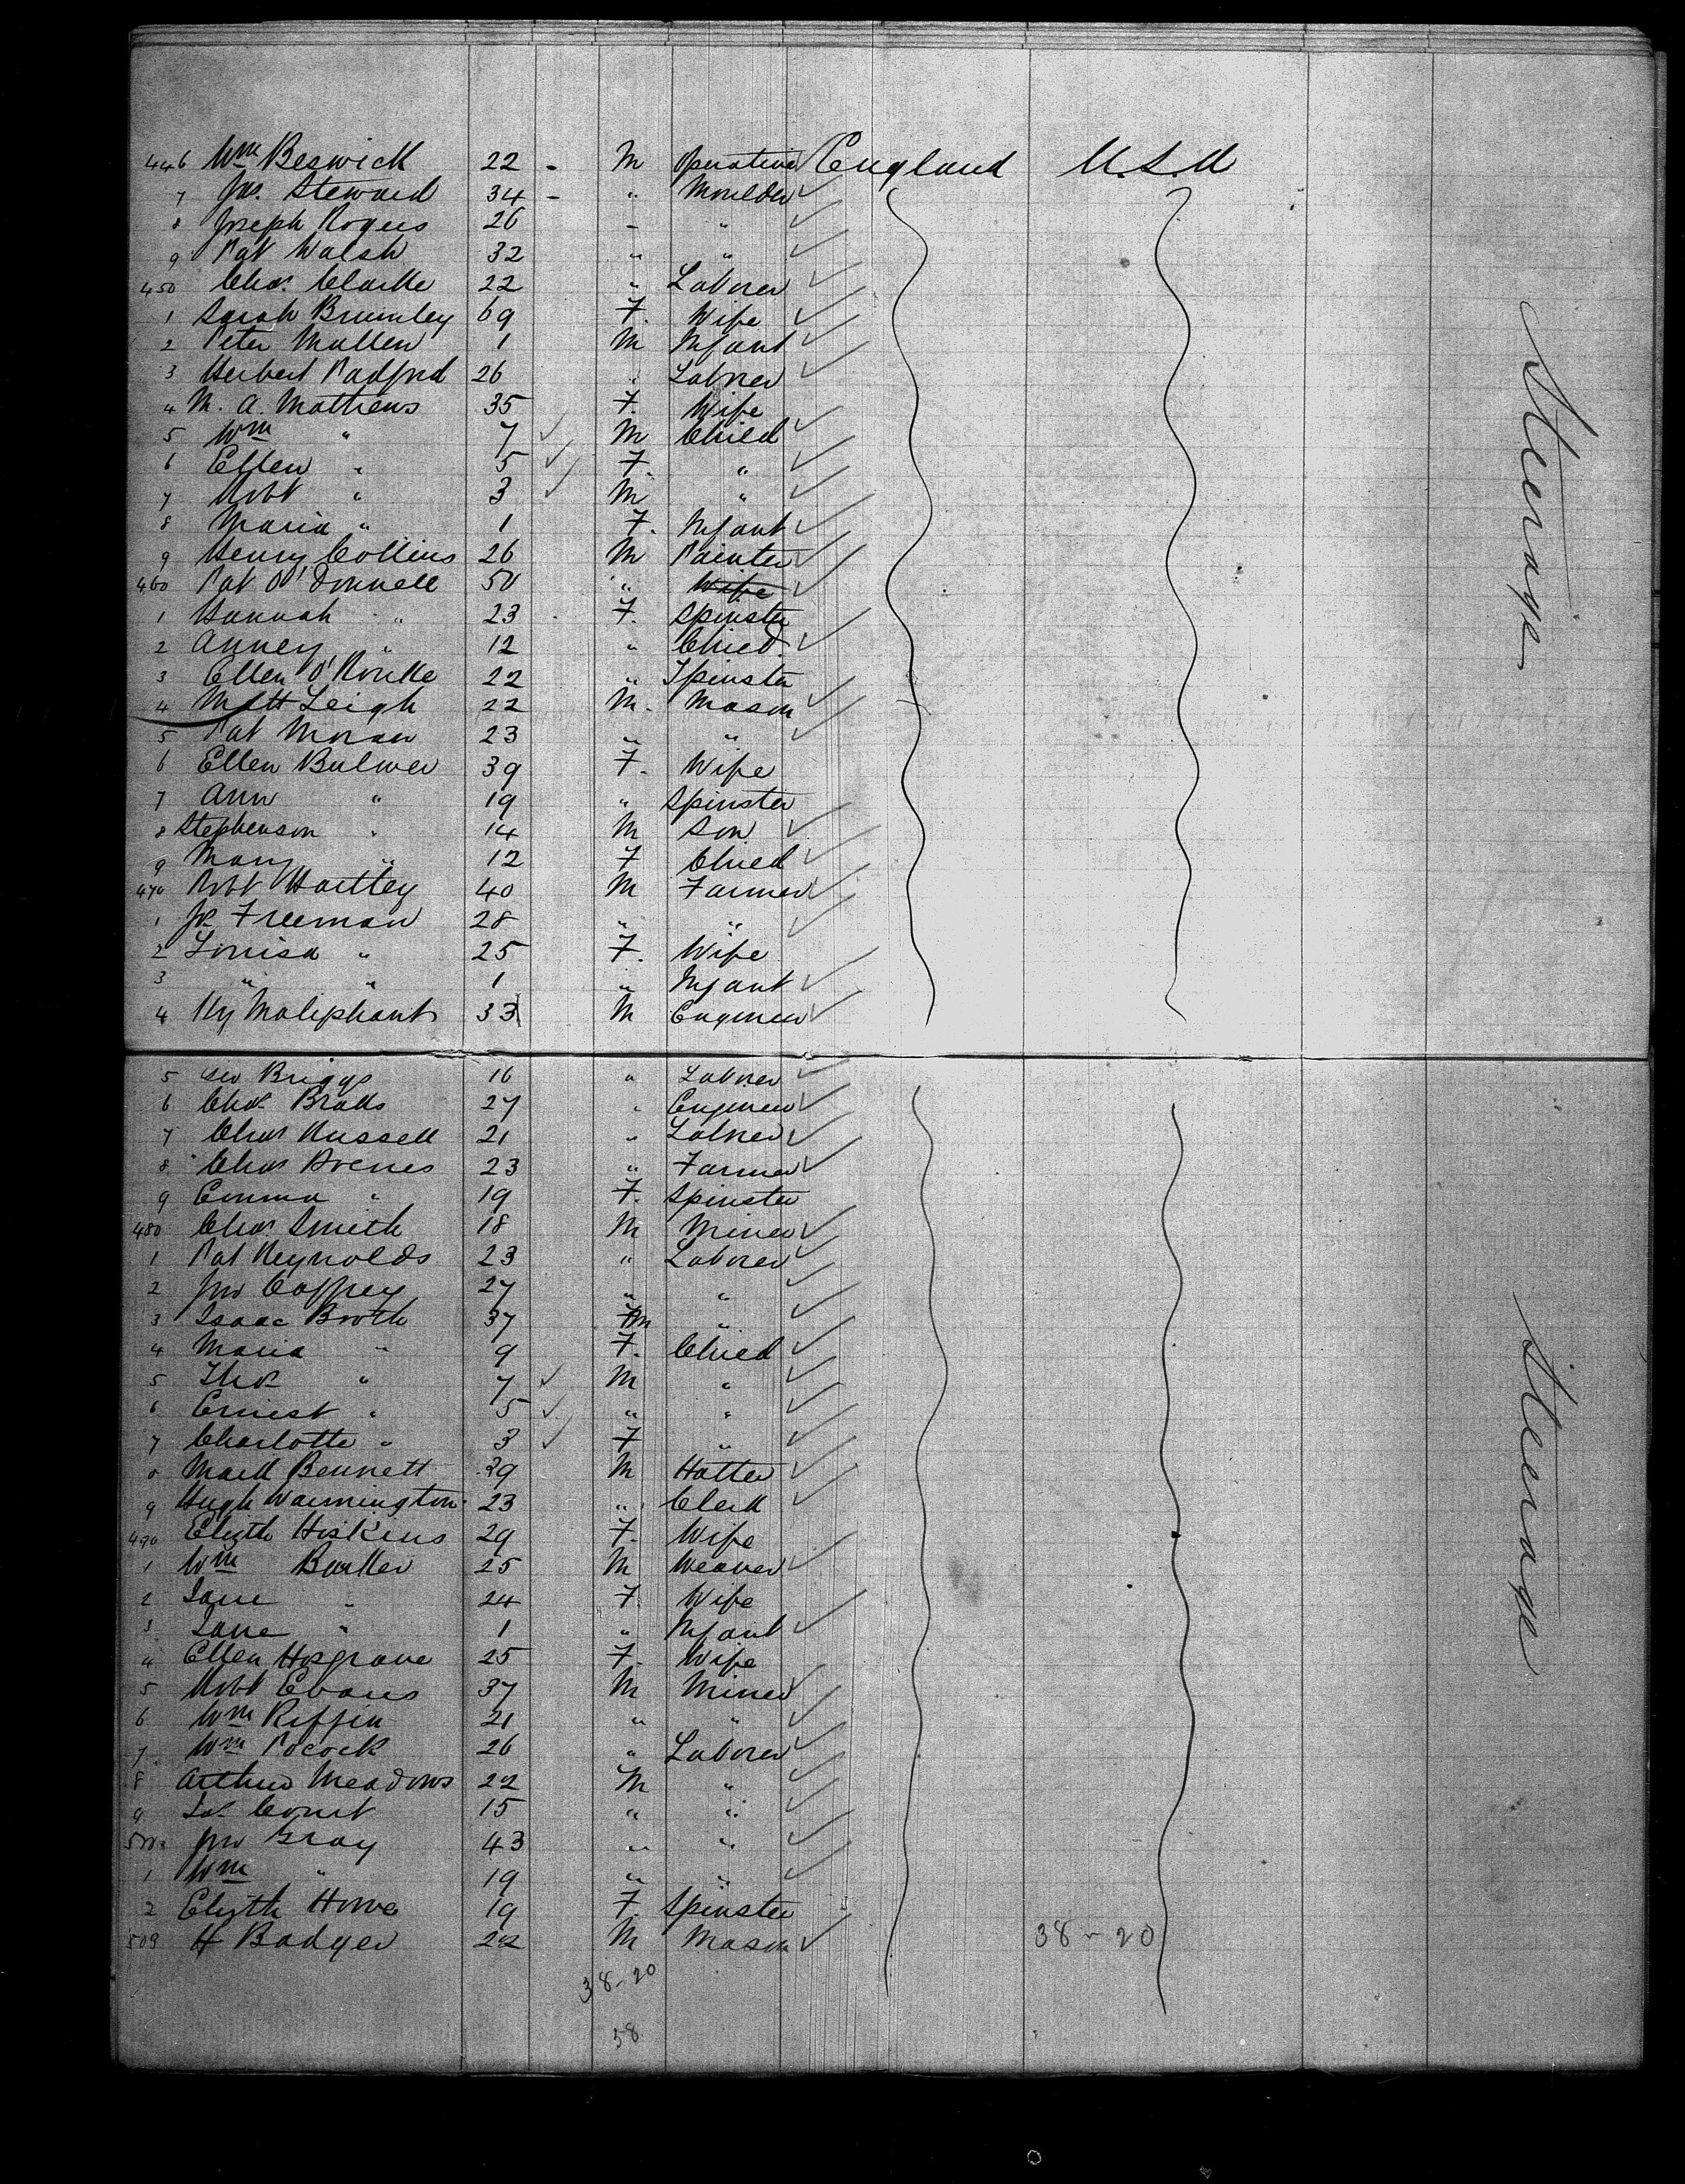 446 Wm Beswick 22 - M Operative England U.S.A
7 Jas. Steward 34 - " Moulder
8 Joseph Rogers 26 - "
9 Pat Walsh 32 " "
450 Chas. Clarke 22 " Laborer
1 Sarah Brumley 69 F. Wife
2 Peter Mullen 1 M Infant
3 Herbert Padford 26 " Laborer
4 M. A. Mathews 35 F. Wife
5 Wm " 7 M Child
6 Ellen " 5 F. "
7 Robt " 3 M "
8 Maria " 1 F. Infant
9 Henry Collins 26 M Painter
460 Pat O'Donnell 50 " Wife
1 Hannah " 23 F. Spinster
2 Anney " 12 " Child
3 Ellen O'Rourke 22 " Spinster
4 Matt Leigh 22 M. Mason
5 Pat Moran 23 " "
6 Ellen Bulmer 39 F. Wife
7 Ann " 19 " Spinster
8 Stephenson " 14 M Son
9 Mary " 12 F Child
470 Robt Hartley 40 M Farmer
1 Jos. Freeman 28 " "
2 Louisa " 25 F. Wife
3 " " 1 " Infant
4 Hy Maliphant 33 M Engineer
Steerage
5 Geo Briggs 16 " Laborer
6 Chas. 27 " Engineer
7 Chas Russell 21 " Laborer
8 Chas 23 " Farmer
9 Emma " 19 F. Spinster
480 Chas. Smith 18 M Miner
1 Pat Reynolds 23 " Laborer
2 Jno Caffrey 27 " "
3 Isaac Booth 37 M "
4 Maria " 9 F. Child
5 Thos " 7 M "
6 Ernest " 5 " "
7 Charlotte " 3 F "
8 Mark Bennett 29 M Hatter
9 Hugh Warmington 23 " Clerk
490 Elizth Hoskins 29 F. Wife
1 Wm Barker 25 M Weaver
2 Jane " 24 F. Wife
3 Jane " 1 " Infant
4 Ellen Hosgrove 25 F. Wife
5 Robt Evans 37 M Miner
6 Wm Riffin 21 " "
7 Wm Pocock 26 " Laborer
8 Arthur Meadows 22 M "
9 Jas. Court 15 " "
500 Jno Gray 43 " "
1 Wm " 19 " "
2 Elizth Howe 19 F. Spinster
503 H Badger 22 M Mason 38-20
38-20
58
Steerage